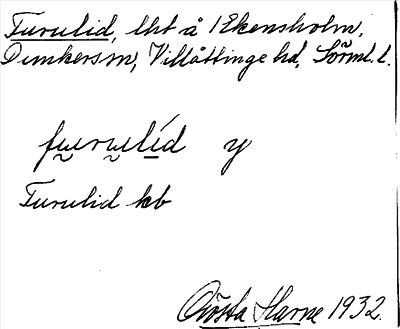 Furulid, lht å Ekensholm,
Dunkers sn, Villåttinge hd, Sörml. l.
fu̯ru̯lí̱d y
Furulid kb
Gösta Harne 1932.